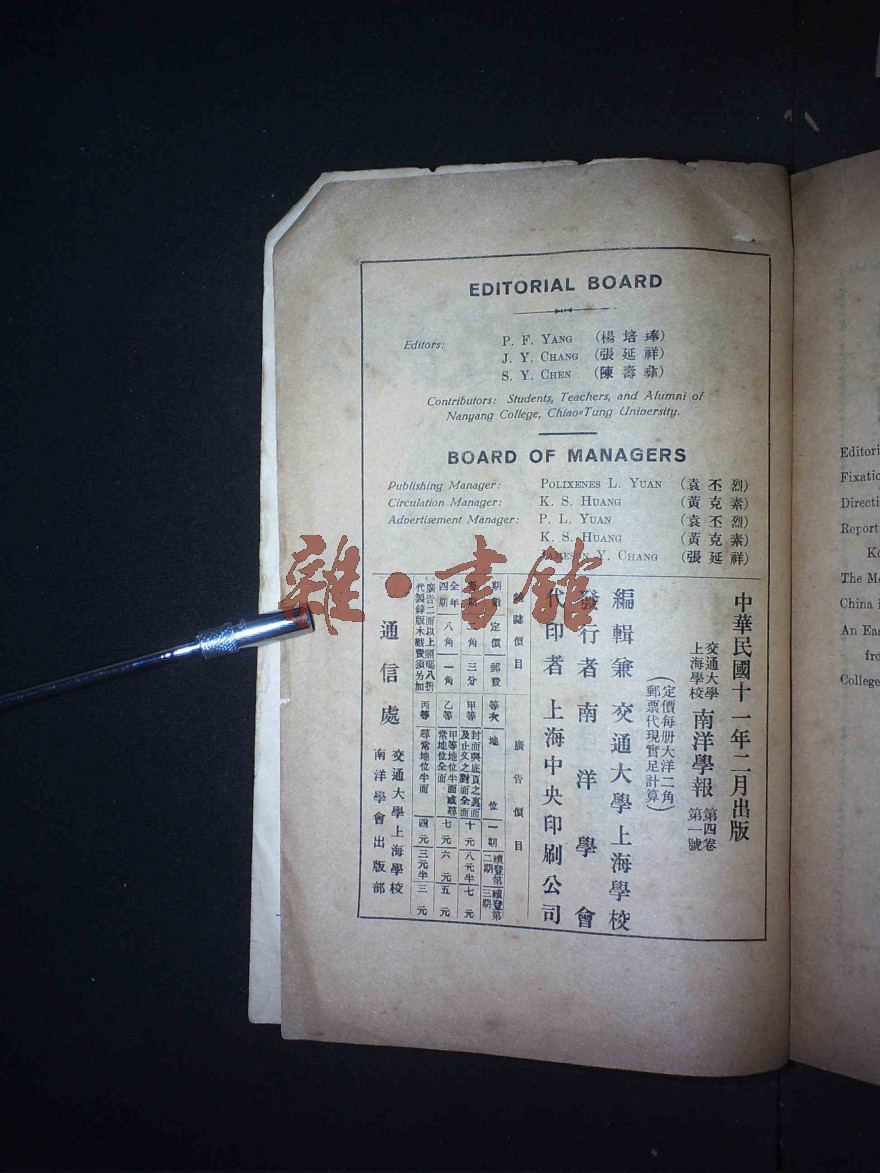 EDITORIAL BOARD
Editors: P. F. YANG (楊培琫)
J. Y. CHANG (張延祥)
S. Y. CHEN (陳壽彝)
Contributors: Students, Teachers, and Alumni of
Nanyang College, Chiao=Tung University.
BOARD OF MANAGERS
Publishing Manager: POLIXENES L. YUAN (袁丕烈)
Circulation Manager: K. S. HUANG (黃克素)
Advertisement Manager: P. L. YUAN (袁丕烈)
K. S. HUANG (黃克素)
JAMESON Y. CHANG (張延祥)
雜·書館
中華民國十一年二月出版
交通大學
上海學校
南洋學報
第四卷
第一號
(定價每册大洋二角
郵票代現實足計算)
編輯兼 交通大學上海學校
發行者 南洋學會
代印者 上海中央印刷公司
雜誌價目
期數 定價 郵費
角 三分
全年
四期 八角 一角
廣告二面以上照碼八折
代製鋅版木戳費須另加
廣告價目
等次 地位 一期 續登第二期 續登第三期
甲等 封面與底頁之裏面
及正文之對面全面 十元 八元半 七元
乙等 甲等地位半面或尋
常地位全面 七元 六元 五元
丙等 尋常地位半面 四元 三元半 三元
通信處
交通大學上海學校
南洋學會出版部
Editori
Fixatio
Directi
Report
Ko
The Me
China i
An Eas
fro
College